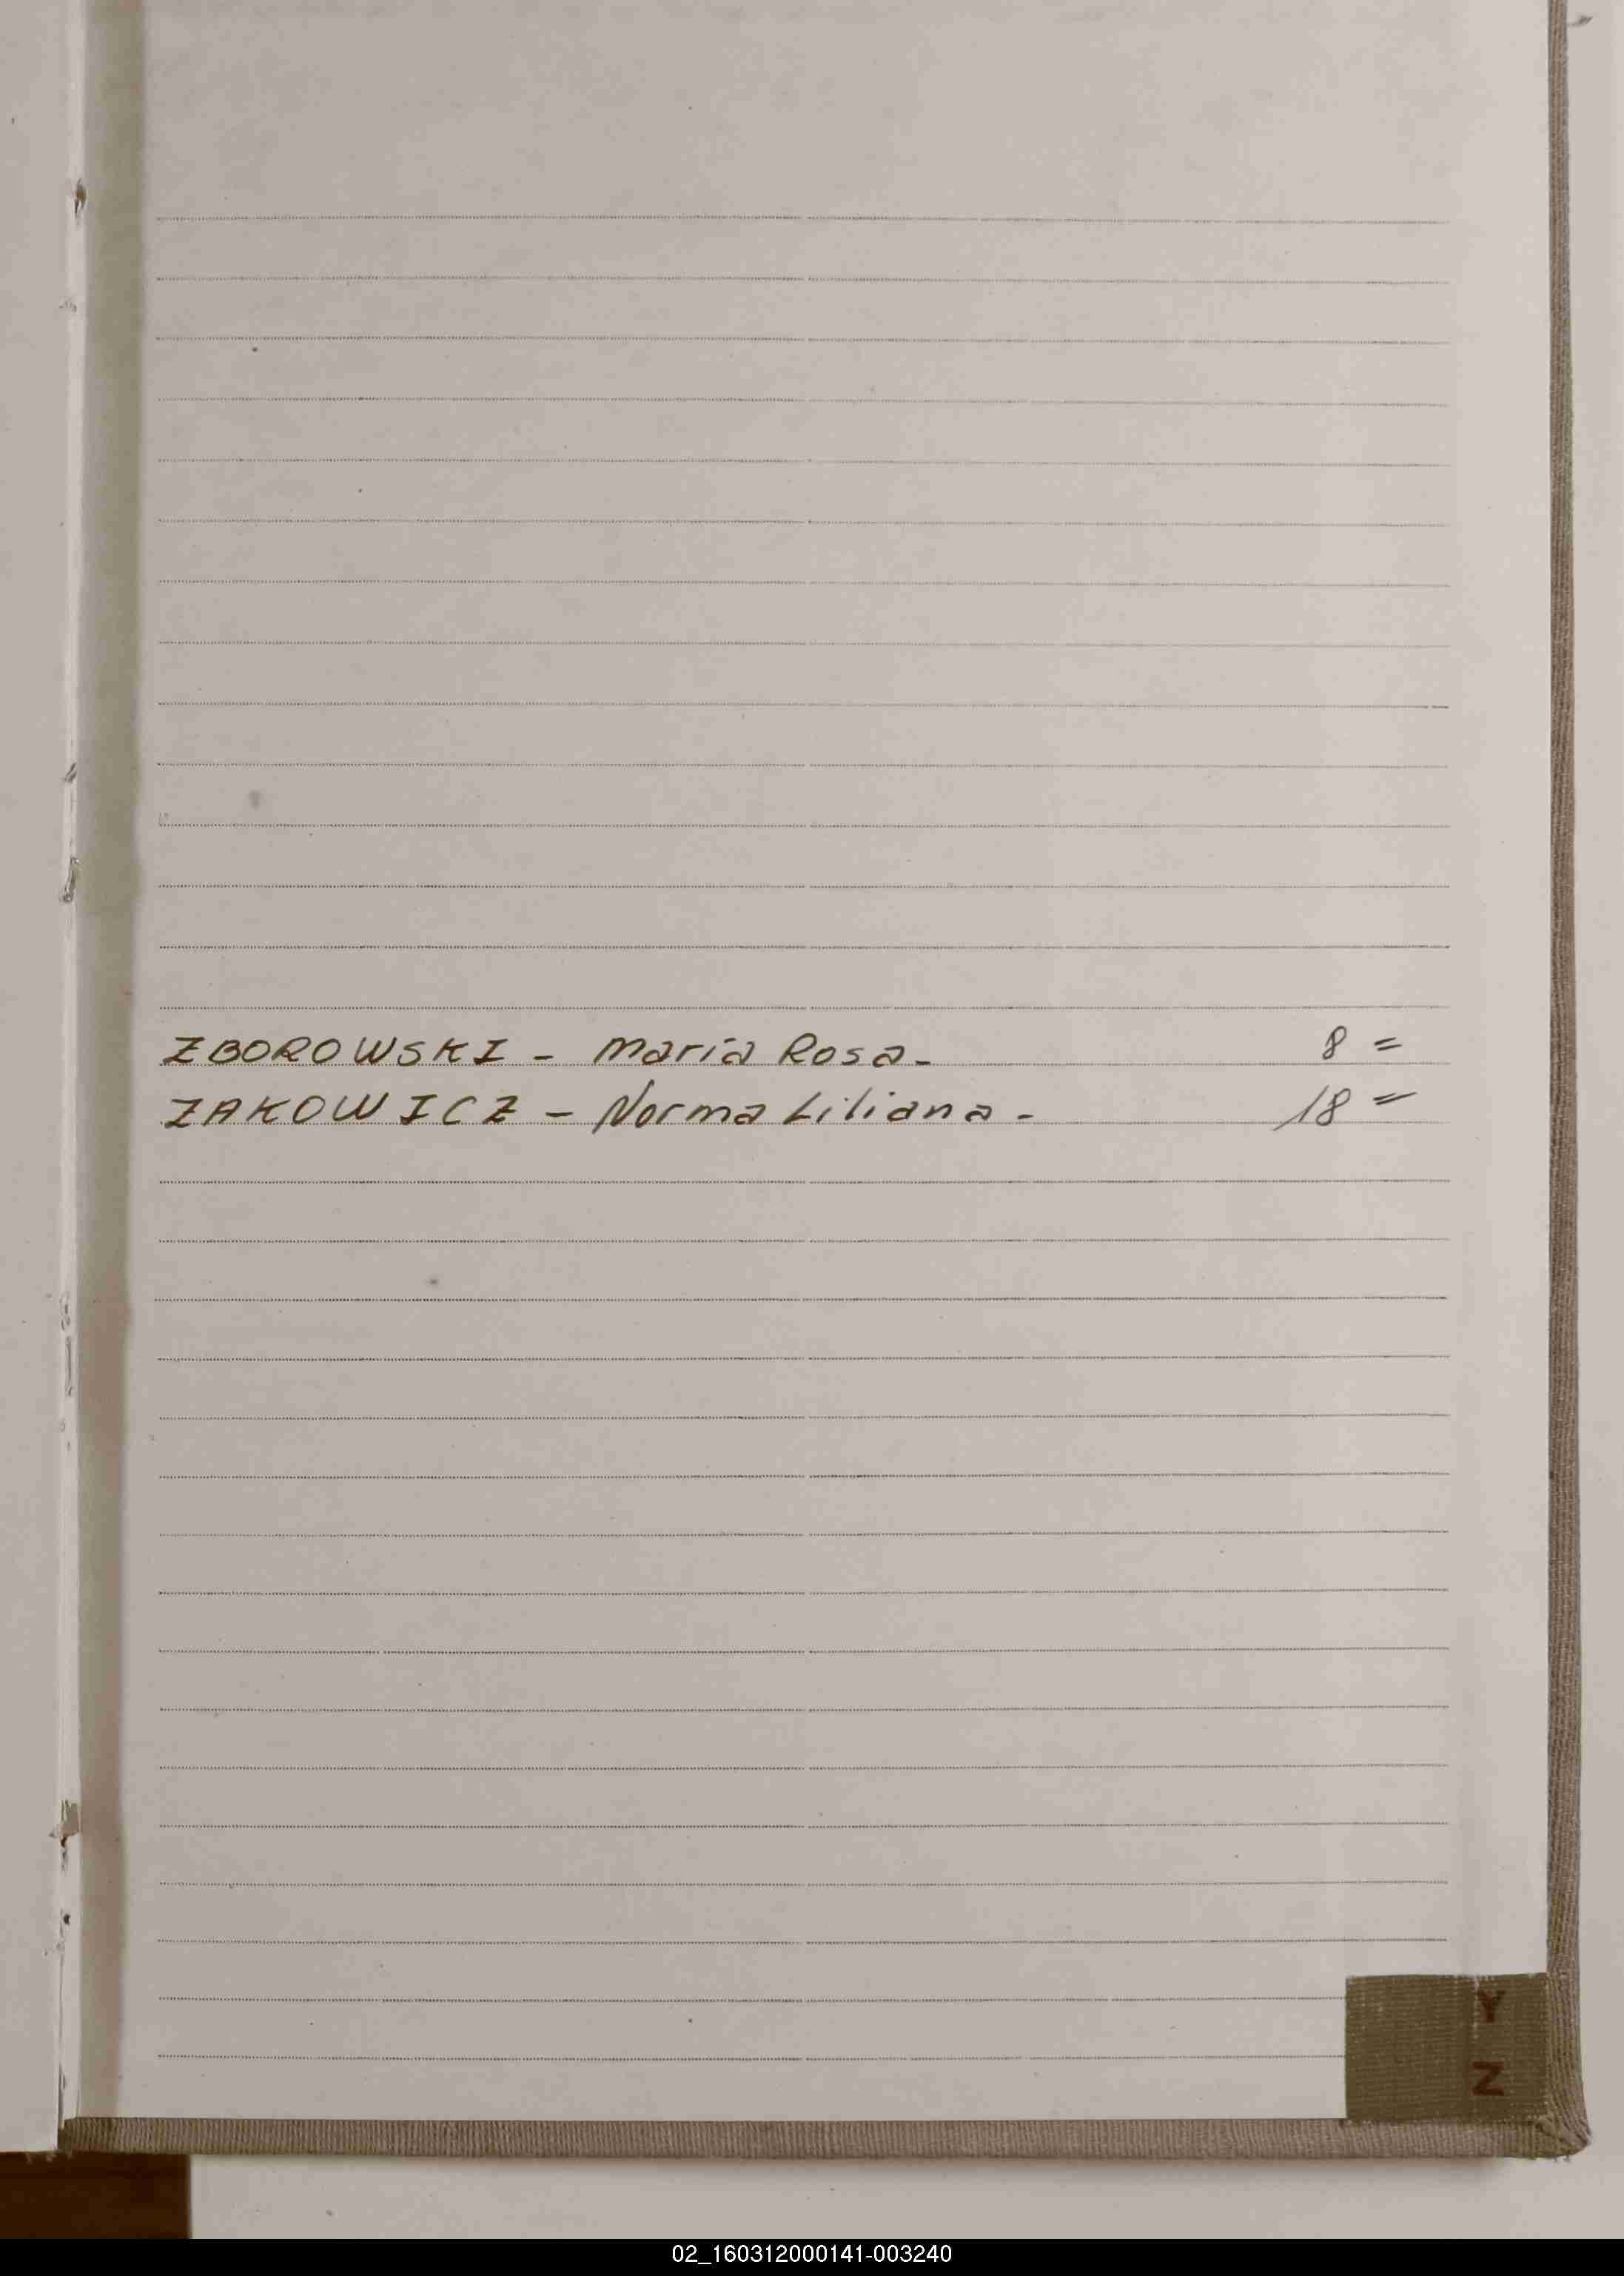 ZBOROWSKI - María Rosa - 8 =
ZAKOWICZ - Norma Liliana - 18 =
Y
Z
02_160312000141-003240